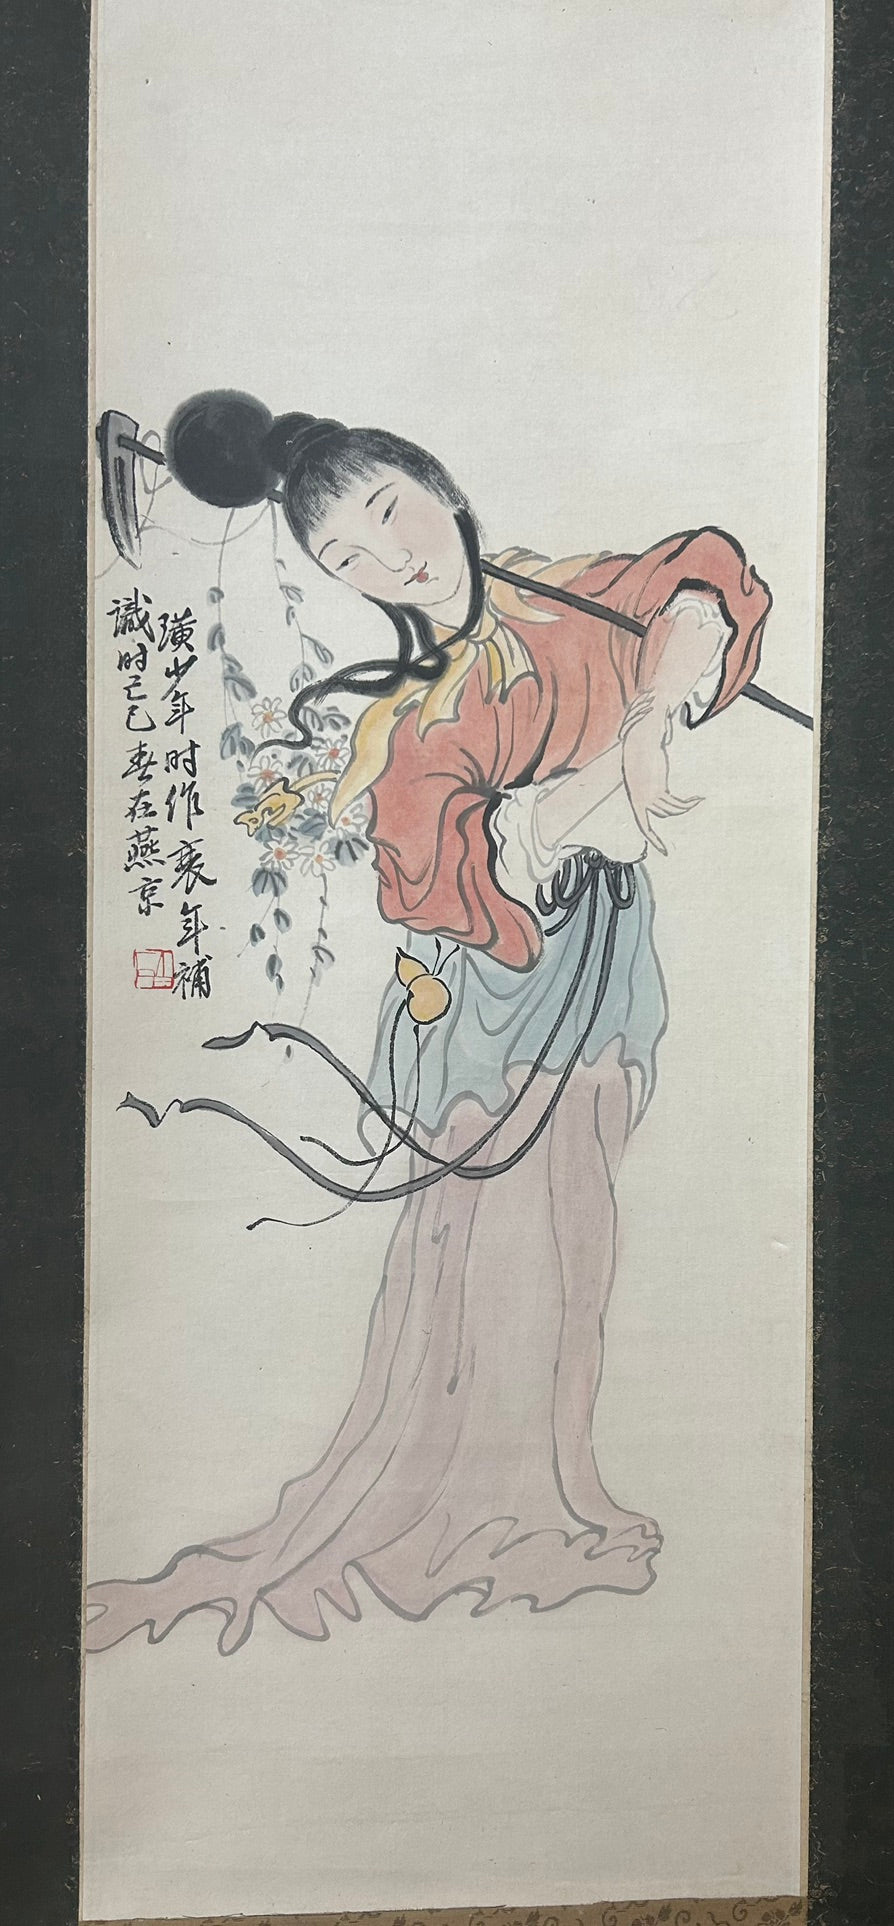 璜少年时作衰年補
識时己巳春在燕京